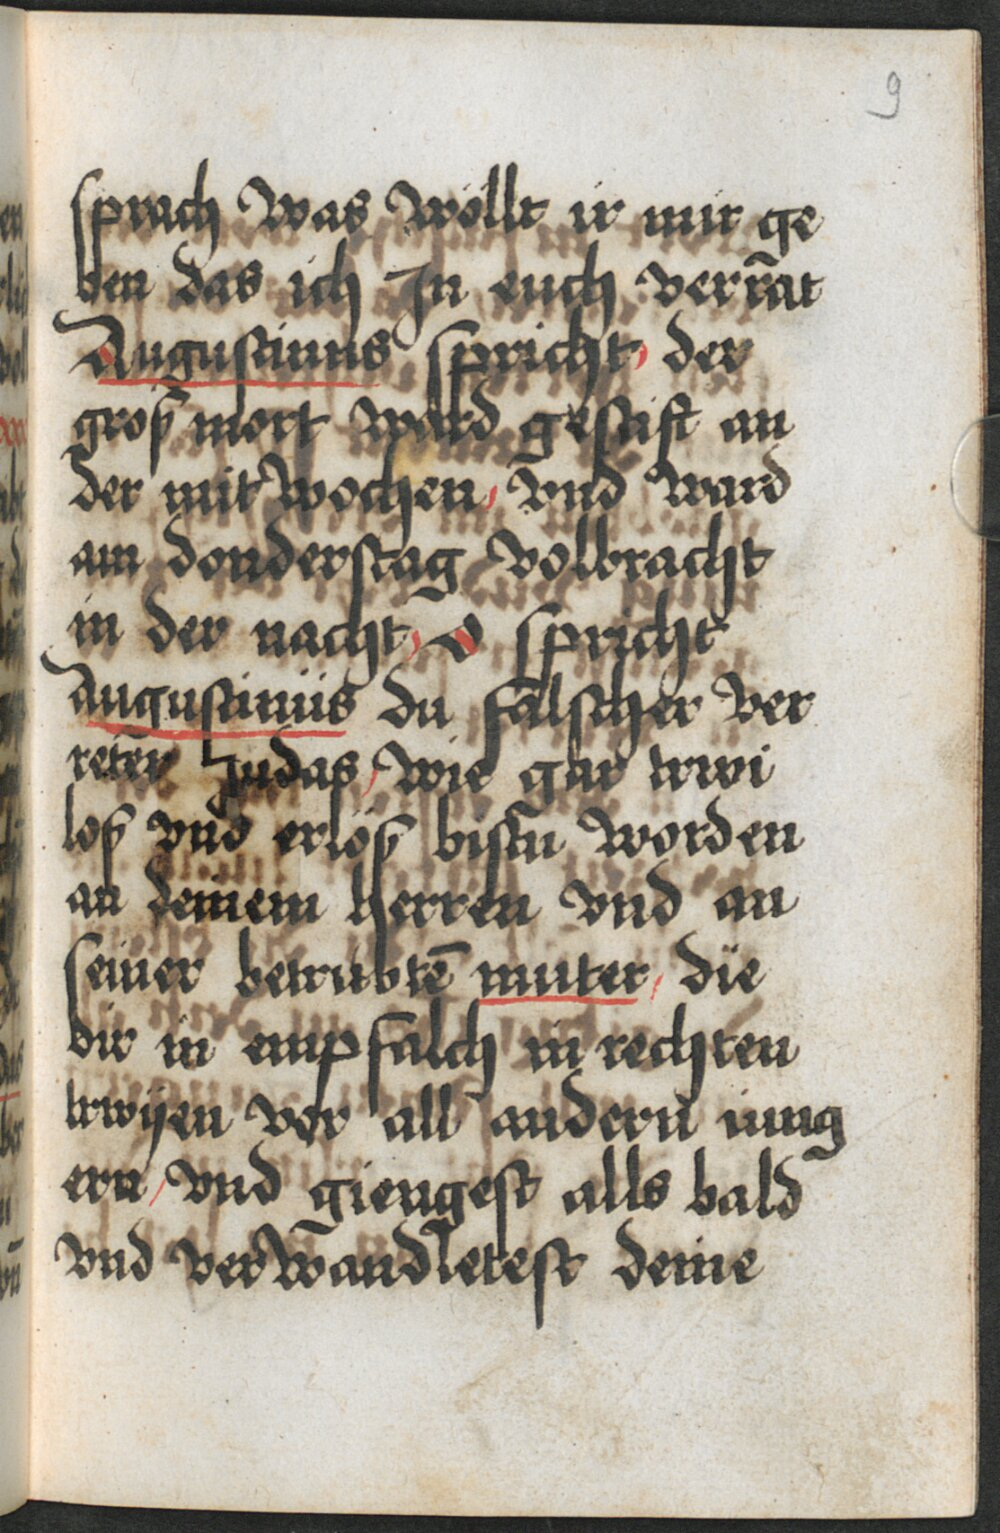 9
sprach was wöllt ir mir ge
ben das ich In euch verrat
Augustinus spricht, der
groß mort ward gestift an
der mitwochen, vnd ward
am donderstag volbracht
in der nacht, O spricht
Augustinus du falscher ver
reter Judas, wie gar trwi
loß vnd erloß bistu worden
an deinem herren vnd an
seiner betrubtē muter, die
dir in empfalch in rechten
trwyen vor all andern iung
ern, vnd giengest alls bald
vnd verwandletest deine